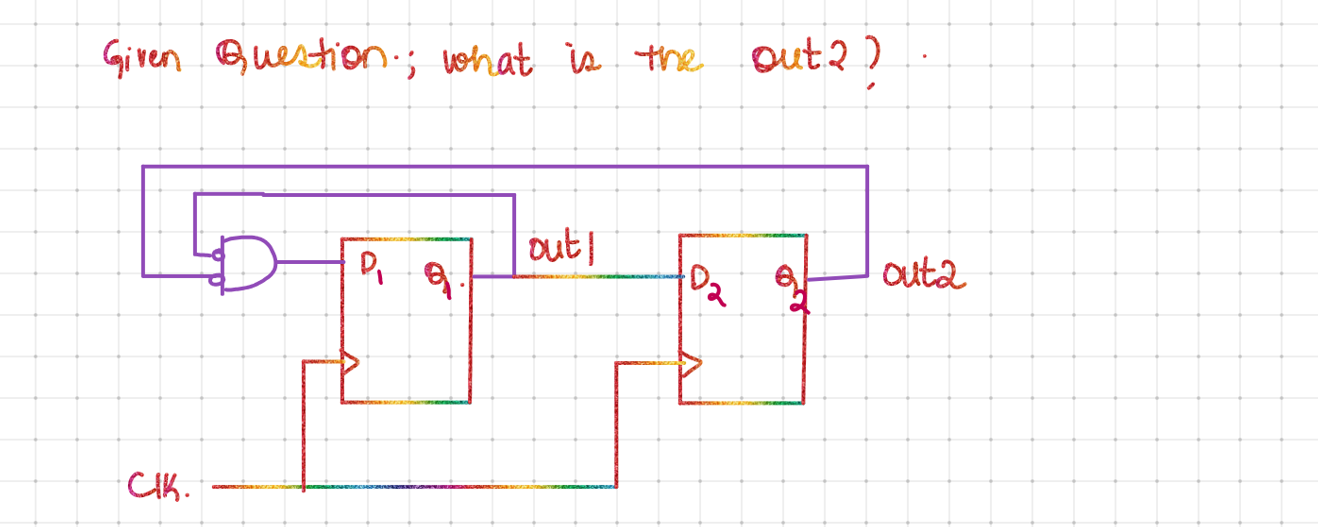 Given Question.; what is the out2?
out1
D1 Q1. D2 Q2 out2
Clk.